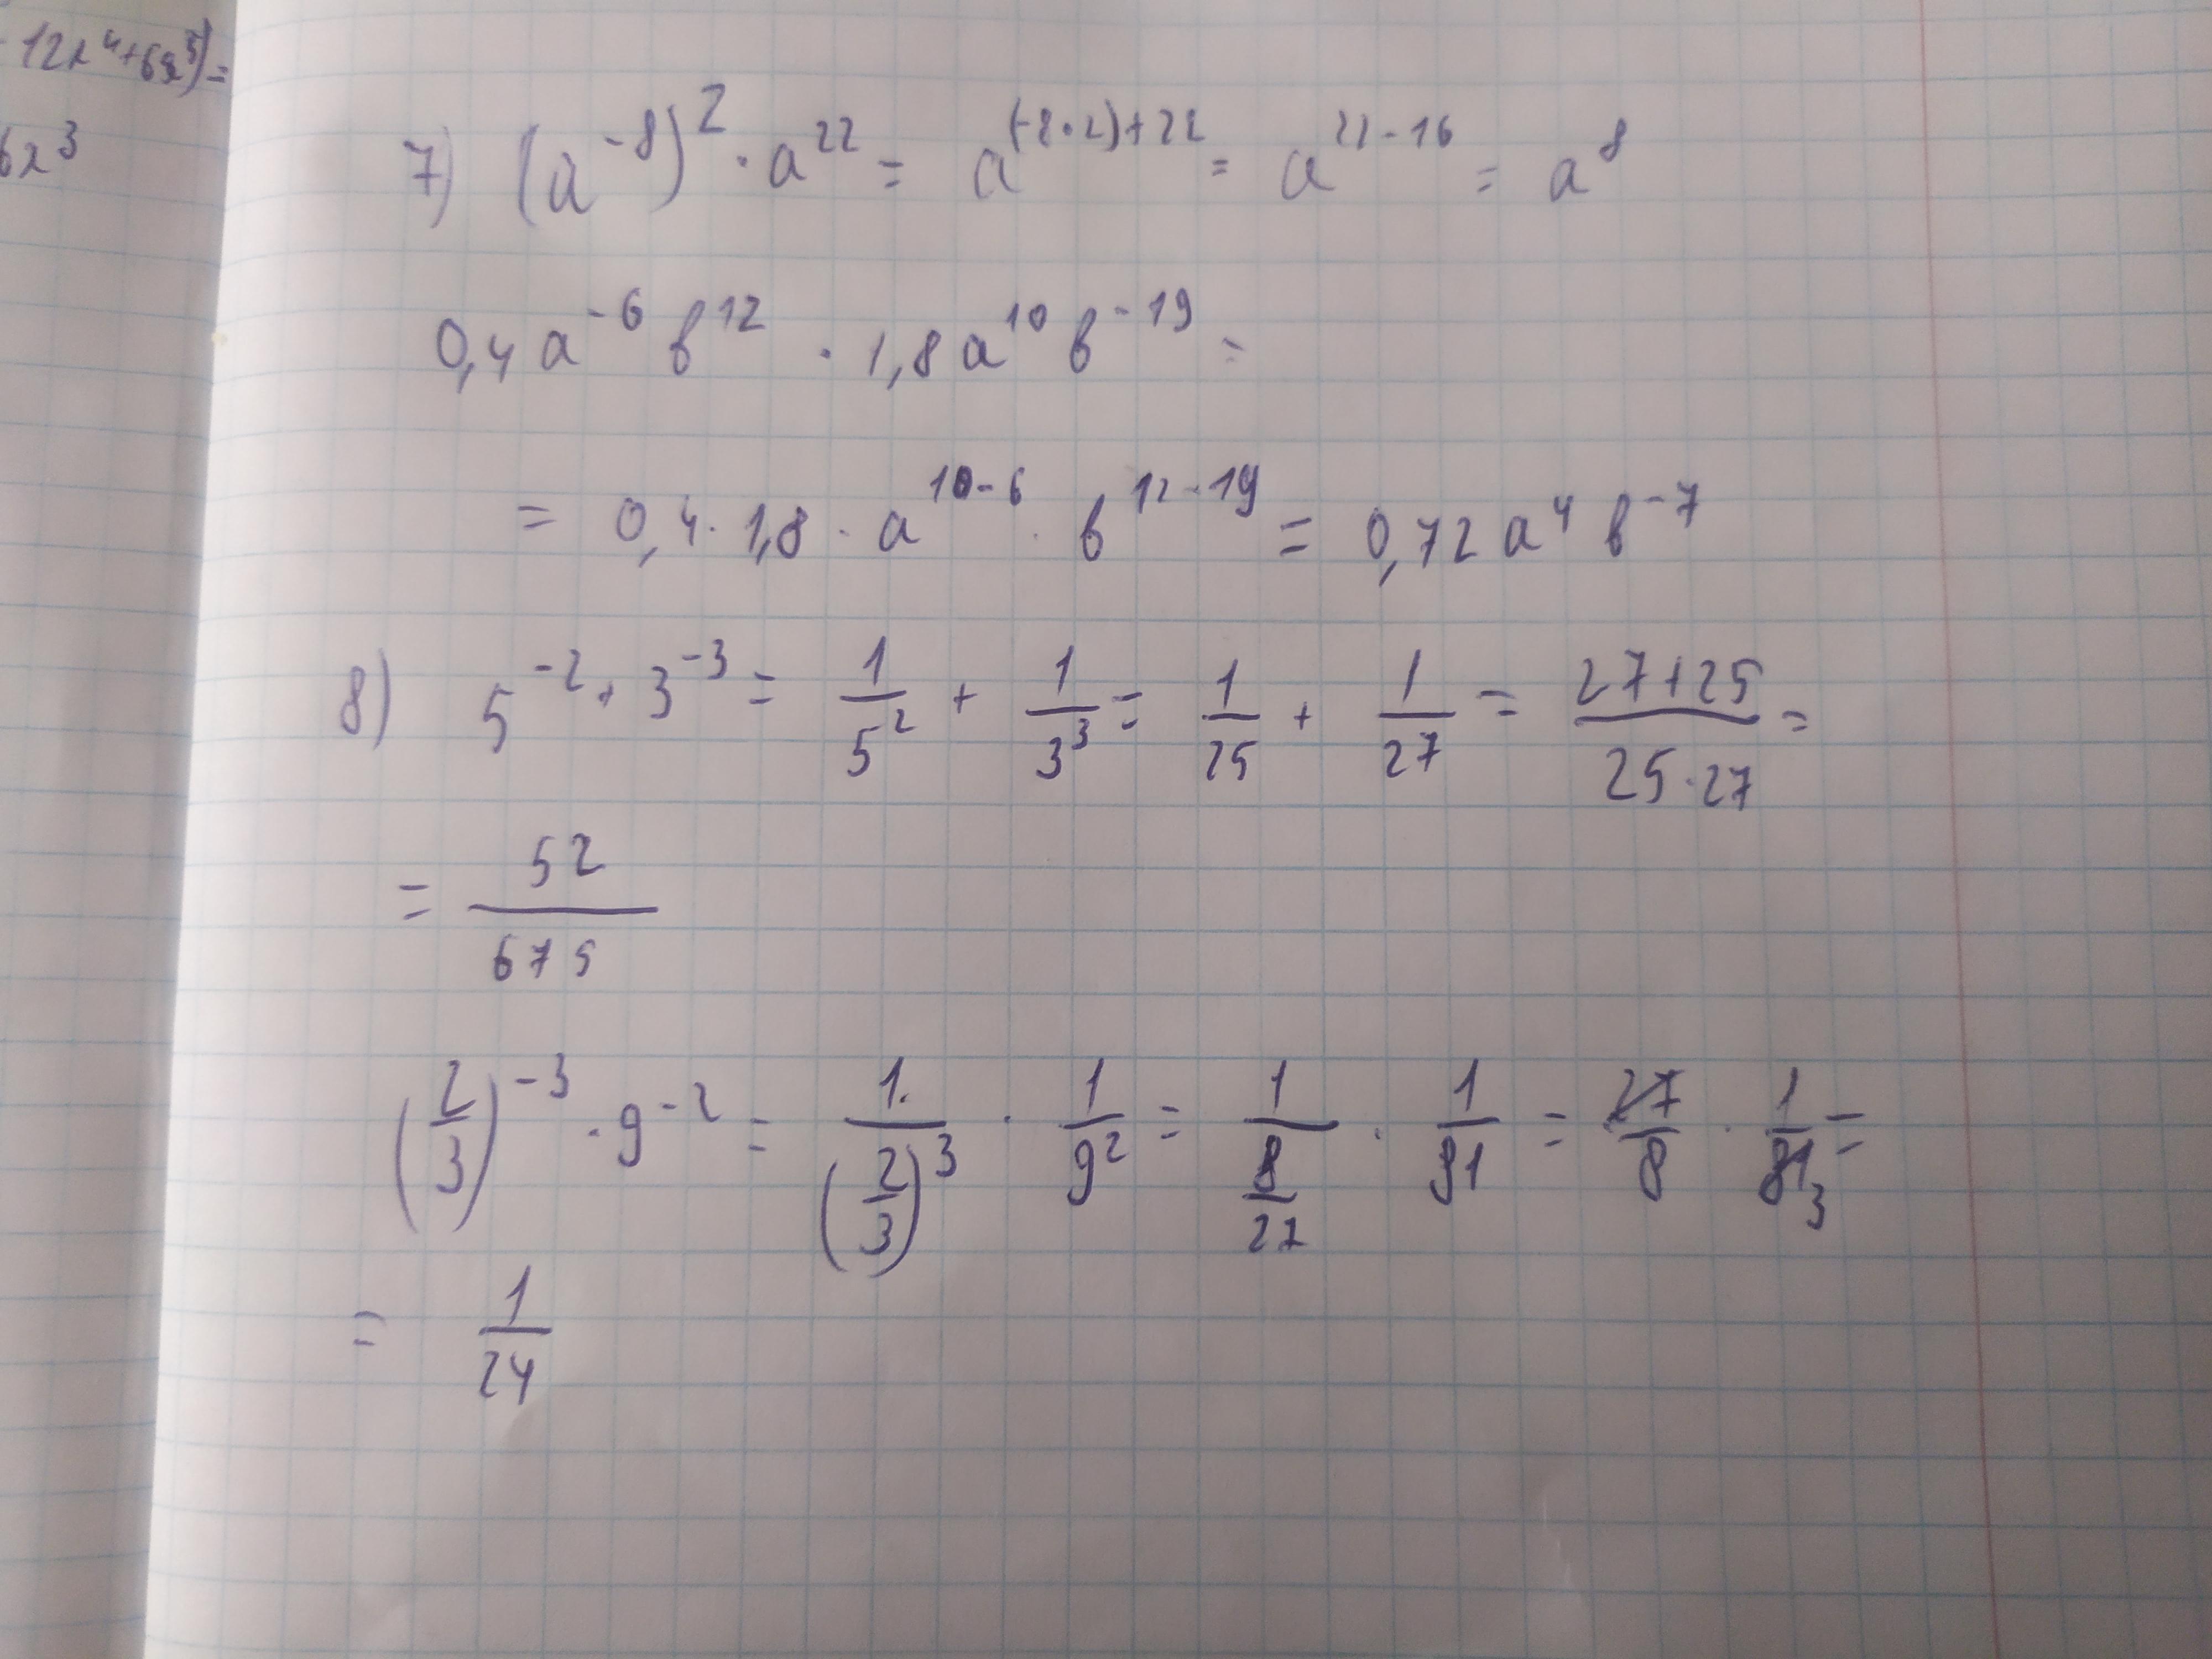 12x⁴+6x³)=
6x³
7) (a⁻⁸)² · a²² = a^((-8·2)+22) = a^(22-16) = a⁸
0,4a⁻⁶b¹² · 1,8a¹⁰b⁻¹⁹ =
= 0,4 · 1,8 · a^(10-6) · b^(12-19) = 0,72a⁴b⁻⁷
8) 5⁻² + 3⁻³ = 1/5² + 1/3³ = 1/25 + 1/27 = (27+25)/(25·27) =
= 52/675
(2/3)⁻³ · 9⁻² = 1/(2/3)³ · 1/9² = 1/(8/27) · 1/81 = 27/8 · 1/81 3 =
= 1/24